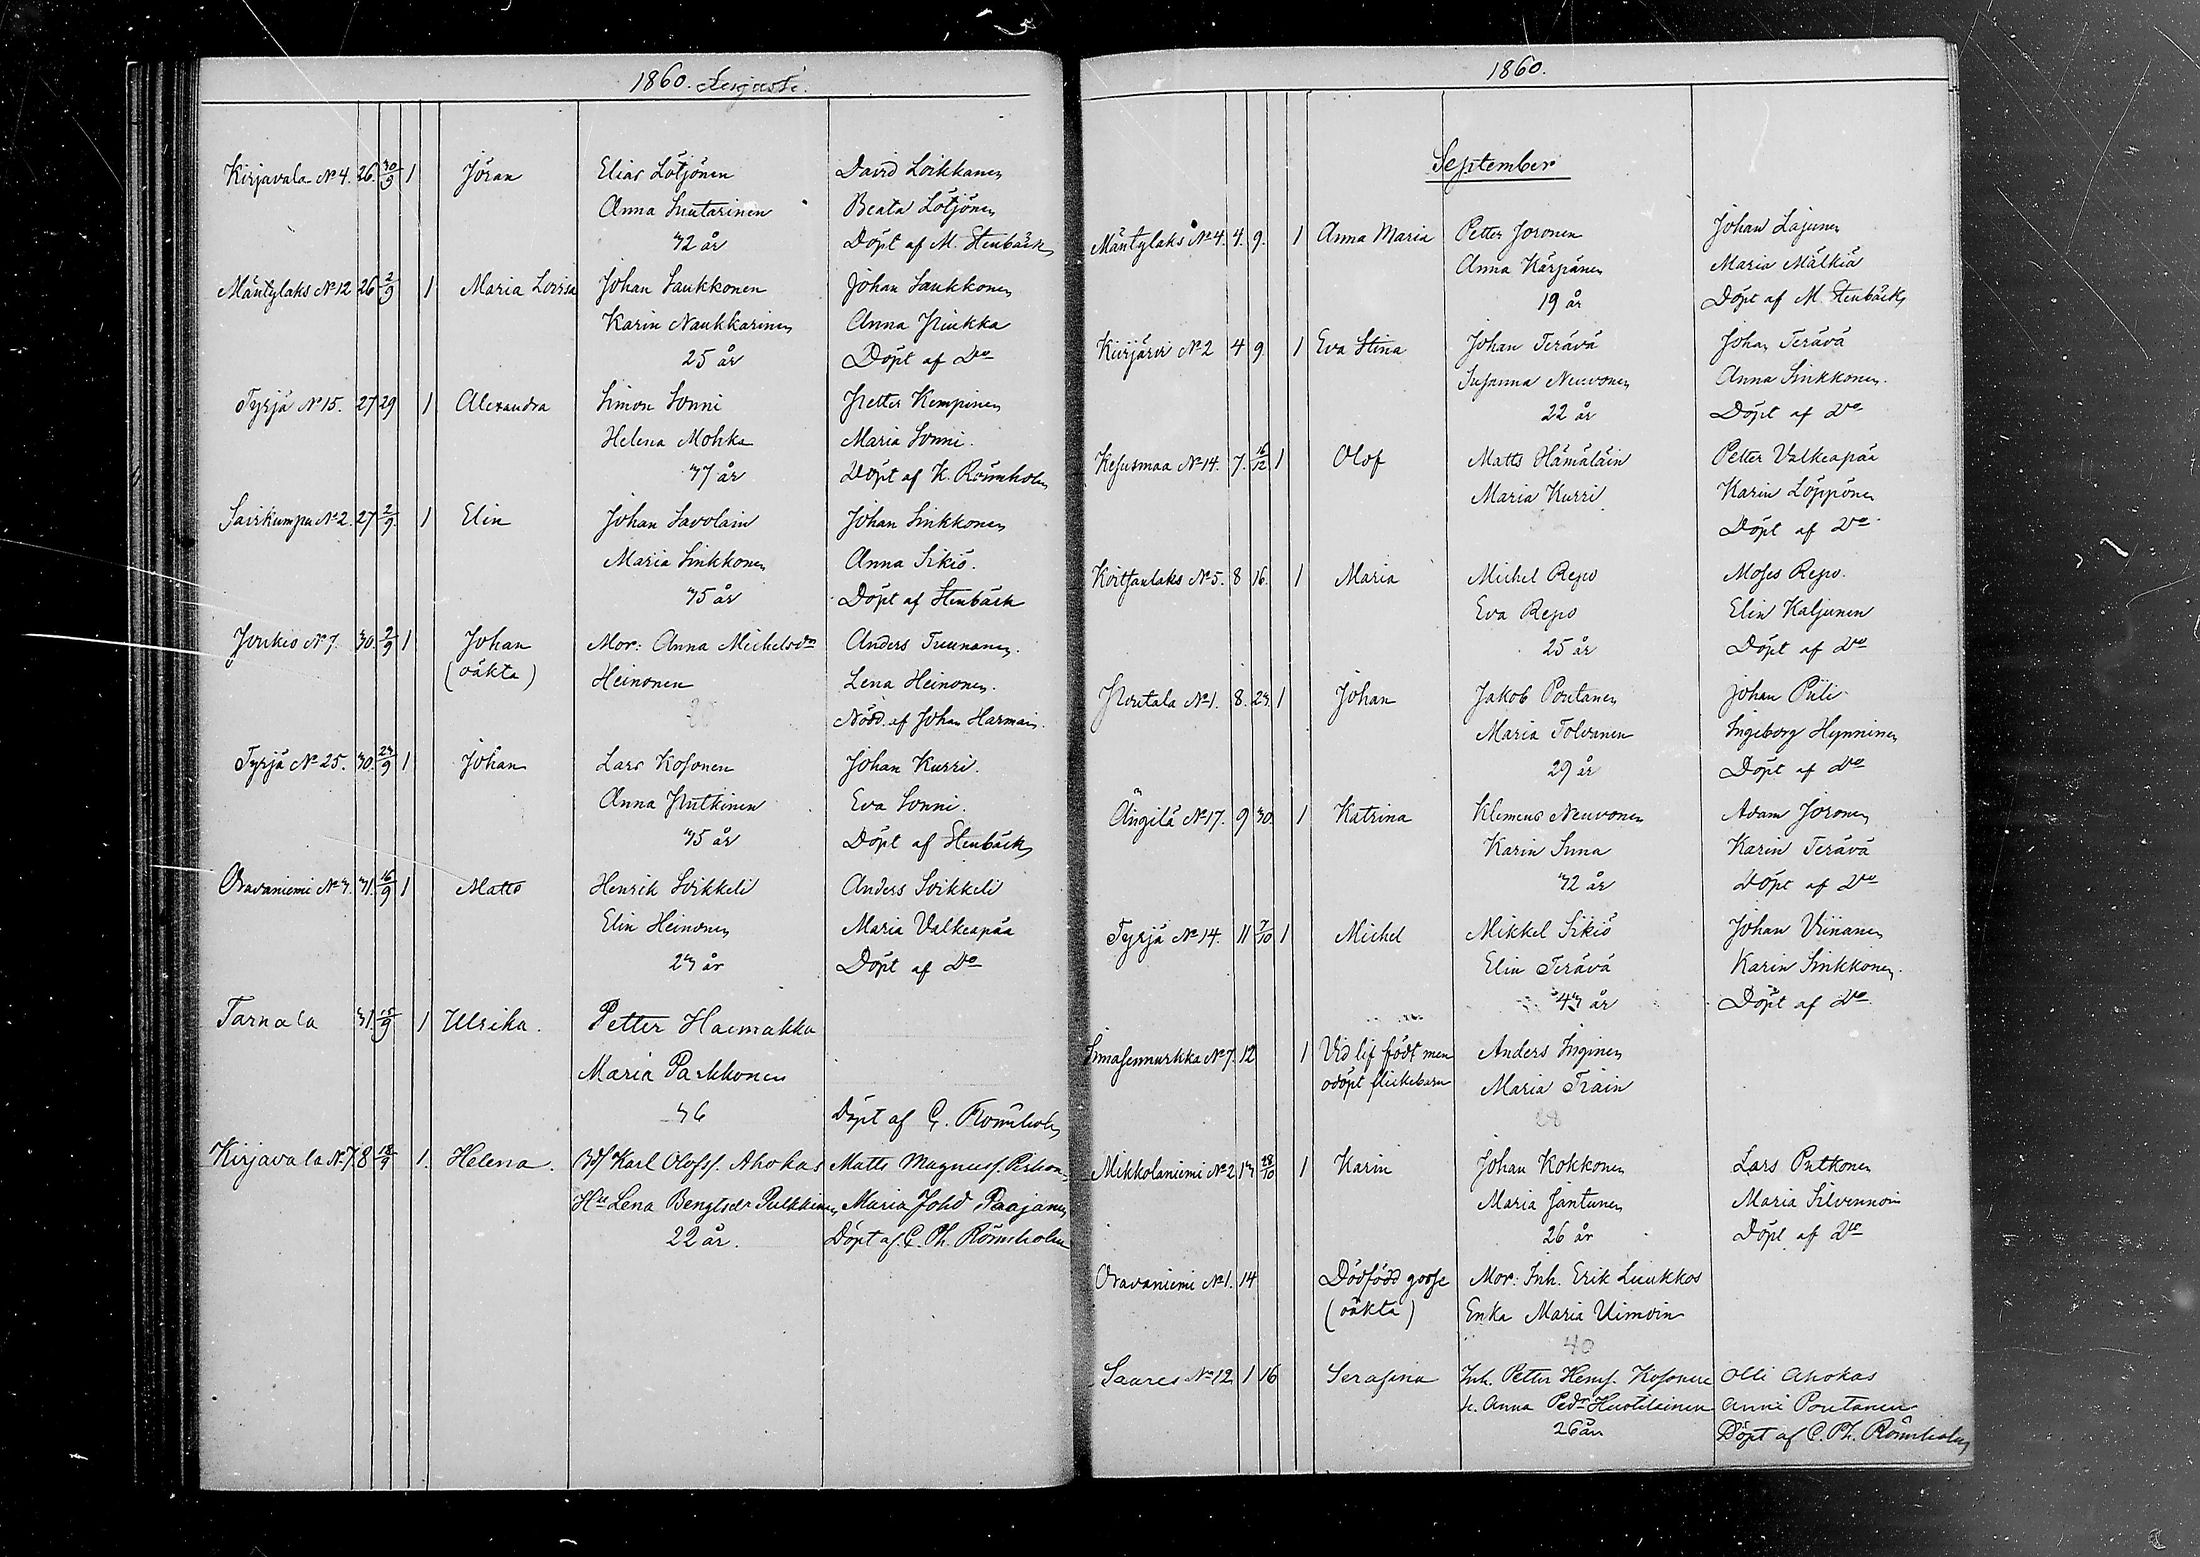 1860. Augusti.
Kirjavala No 4. 26. 30/9 1 Jöran Elias Lötjönen David Loikkanen
Anna Inutarinen Beata Lötjönen
32 år Döpt af M. Stenbäck
Mäntylaks No 12 26 2/9 1 Maria Lovisa Johan Saukkonen Johan Saukkonen
Karin Naukkarinen Anna Piukka
25 år Döpt af Do
Tyrjä No 15. 27 29 1 Alexandra Simon Sonni Petter Kempinen
Helena Mohka Maria Sonni.
37 år Döpt af K. Rönnholm
Sairkumpu No 2. 27 2/9 1 Elin Johan Savolain Johan Sinkkonen
Maria Sinkkonen Anna Sikiö.
35 år Döpt af Stenbäck
Joukio No 7. 30. 2/9 1 Johan Mor: Anna Michelsdr Anders Tuunanen.
(oäkta) Heinonen Lena Heinonen.
Nödd. af Johan Harmain.
Tyrjä No 25. 30. 23/9 1 Johan Lars Kosonen Johan Kurri.
Anna Putkinen Eva Sonni.
35 år Döpt af Stenbäck
Oravaniemi No 3. 31. 16/9 1 Matts Henrik Soikkeli Anders Soikkeli
Elin Heinonen Maria Valkeapää
23 år Döpt af Do
Tarnala 31 /9 1 Ulrika. Petter Haimakka
Maria Parkkonen
36 Döpt af C. Rönnholm
Kirjavala No 7 8 /9 1. Helena. Karl Olofss. Ahokas Matts Magnuss.
Hu Lena Bengtsdr Pulkkinen Maria Johd Paajanen
22 år. Döpt af C. Ph. Rönnholm
1860.
September
Mäntylaks No 4. 4. 9. 1 Anna Maria Petter Joronen Johan Lajunen
Anna Kärpänen Maria Mälkiä
19 år Döpt af M. Stenbäck
Kiurjärvi No 2 4 9. 1 Eva Stina Johan Terävä Johan Terävä
Susanna Neuvonen Anna Sinkkonen.
22 år Döpt af Do
Kesusmaa No 14. 7. 16/12 1 Olof Matts Hämäläin Petter Valkeapää
Maria Kurri Karin Löppönen
Döpt af Do
Koitsanlaks No 5. 8 16. 1 Maria Michel Repo Moses Repo.
Eva Repo Elin Kaljunen
25 år Döpt af Do
Poutala No 1. 8. 23. 1 Johan Jakob Poutanen Johan Puli
Maria Tolvanen Ingeborg Hynninen
29 år Döpt af Do
Ängilä No 17. 9 30. 1 Katrina Klemens Neuvonen Adam Joronen
Karin Inna Karin Terävä
32 år Döpt af Do
Tyrjä No 14. 11 7/10 1 Michel Mikkel Sikiö Johan Viinanen
Elin Terävä Karin Sinkkonen.
43 år Döpt af Do
No 7. 12 1 Vid lif födt men Anders Inginen
odöpt flickebarn Maria Train
28
Mikkolaniemi No 2 13 28/10 1 Karin Johan Kokkonen Lars Putkonen
Maria Jantunen Maria Silvennoin
26 år Döpt af Do
Oravaniemi No 1. 14 Dödfödd gosse Mor: Inh. Erik Luukkos
(oäkta) Enka Maria Uimoin
40
Saares No 12 1 16 Serafina Inh. Petter Hens. Kosonen Olli Ahokas
h. Anna Pedr Huotilainen Anni Poutanen
26 år Döpt af C. Ph. Rönnholm